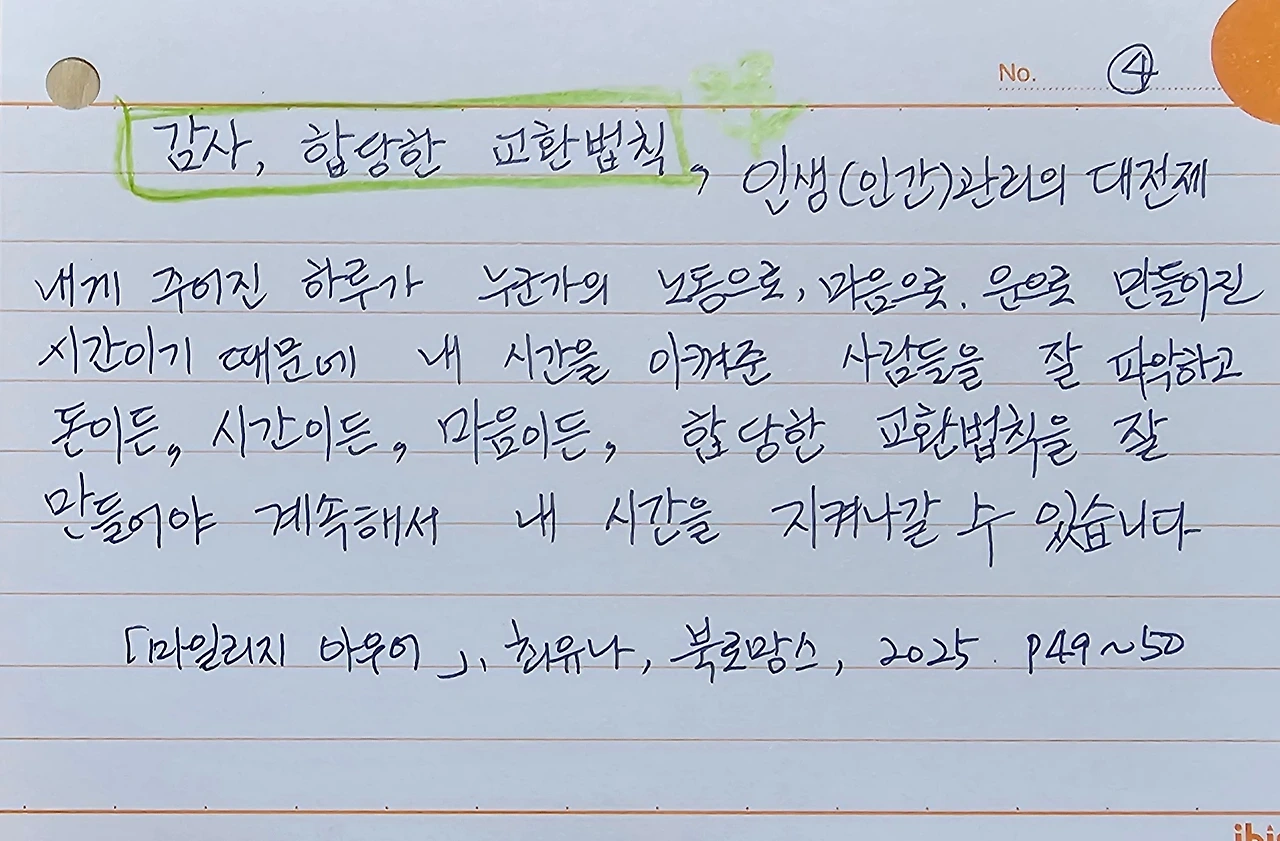 No. ④
감사, 합당한 교환법칙, 인생(인간)관리의 대전제
내게 주어진 하루가 누군가의 노동으로, 마음으로, 운으로 만들어진
시간이기 때문에 내 시간을 아껴준 사람들을 잘 파악하고
돈이든, 시간이든, 마음이든, 합당한 교환법칙을 잘
만들어야 계속해서 내 시간을 지켜나갈 수 있습니다
「마일리지 아우어」, 최유나, 북로망스, 2025. p49~50